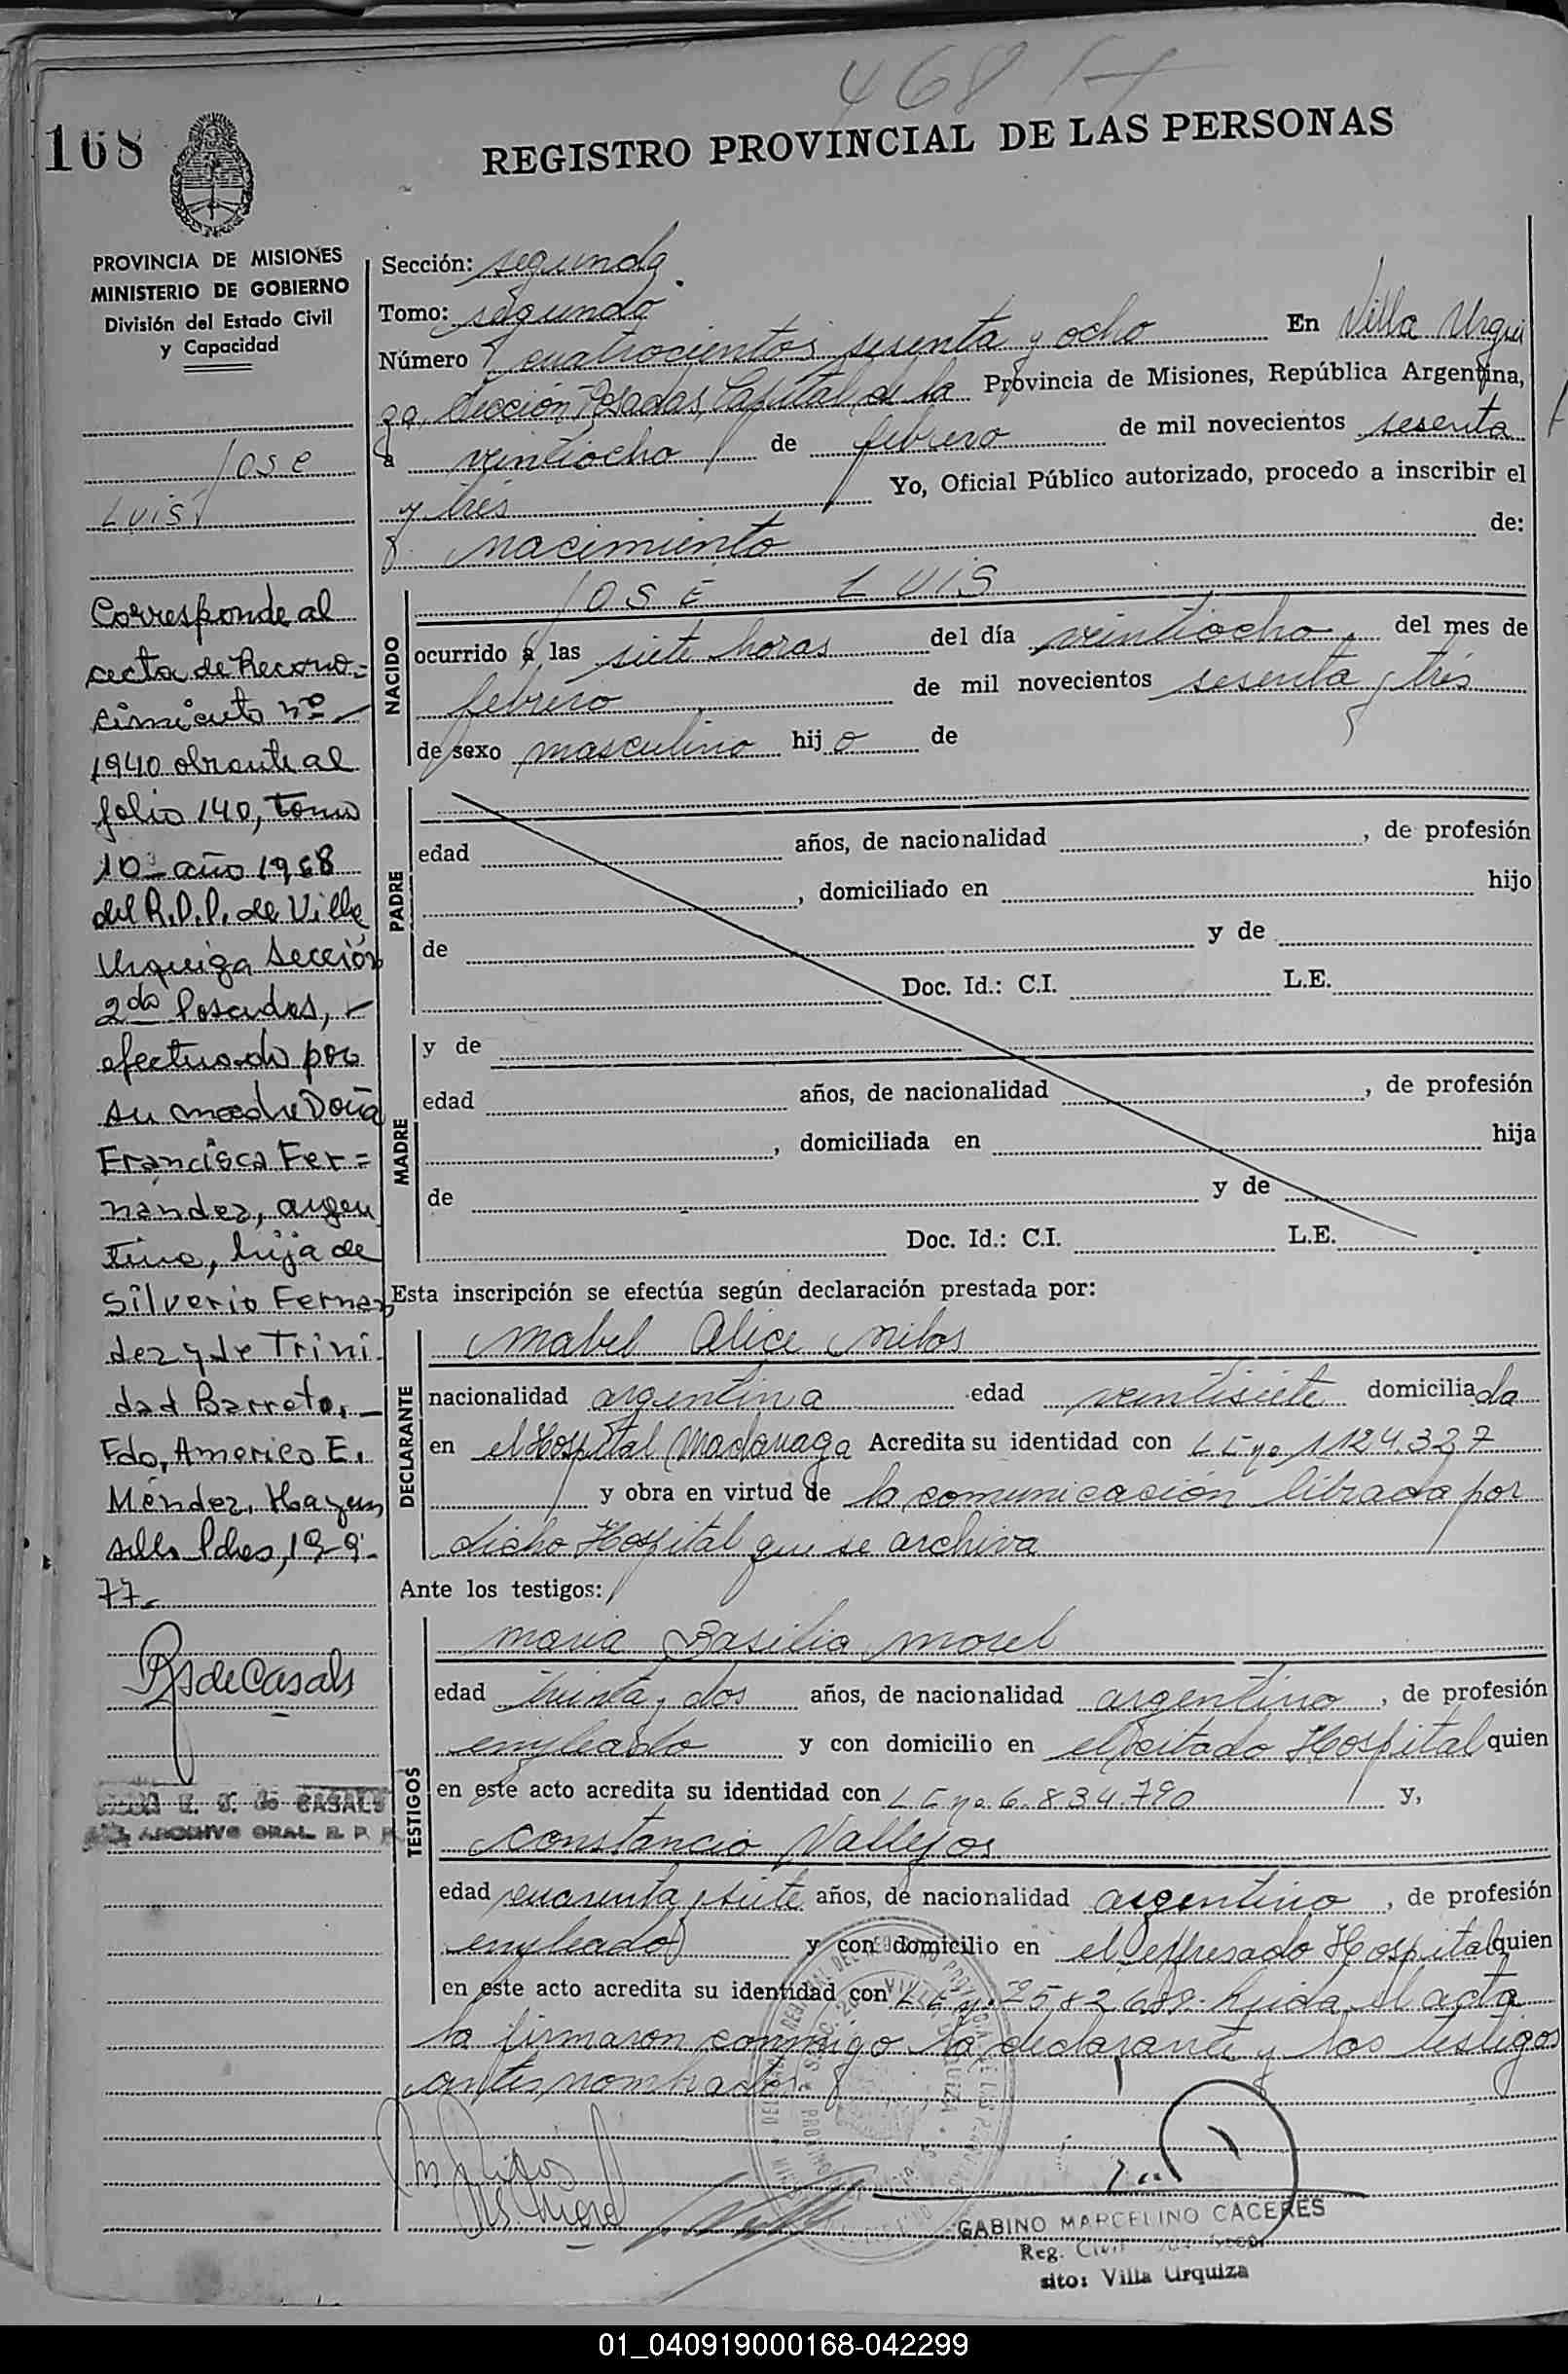 468
168
REGISTRO PROVINCIAL DE LAS PERSONAS
PROVINCIA DE MISIONES
MINISTERIO DE GOBIERNO
División del Estado Civil
y Capacidad
Jose
Luis
Corresponde al
acta de Recono=
cimiento nº
1940 obrante al
folio 140, tomo
10º año 1968
del R.P.P. de Villa
Urquiza Sección
2da Posadas,
efectuado por
su madre Doña
Francisca Fer=
nandez, argen
tina, hija de
Silverio Fernan
dez y de Trini
dad Barreto.
Fdo, Americo E.
Méndez. Hay un
sello Pdas, 19-9-
77.
RS de Casals
E. S. de CASALS
ARCHIVO GRAL. R. P. P.
Sección: segunda
Tomo: segundo
Número cuatrocientos sesenta y ocho En Villa Urqui
za Sección Posadas, Capital de la Provincia de Misiones, República Argentina,
a veintiocho de febrero de mil novecientos sesenta
y tres Yo, Oficial Público autorizado, procedo a inscribir el
nacimiento de:
NACIDO
JOSE LUIS
ocurrido a las siete horas del día veintiocho del mes de
febrero de mil novecientos sesenta y tres
de sexo masculino hijo de
PADRE
edad años, de nacionalidad , de profesión
, domiciliado en hijo
de y de
Doc. Id.: C.I. L.E.
MADRE
y de
edad años, de nacionalidad , de profesión
, domiciliada en hija
de y de
Doc. Id.: C.I. L.E.
Esta inscripción se efectúa según declaración prestada por:
DECLARANTE
Mabel Alice Milos
nacionalidad argentina edad veintisiete domiciliada
en el Hospital Madariaga Acredita su identidad con L C nº 1124.327
y obra en virtud de la comunicación librada por
dicho Hospital que se archiva
Ante los testigos:
TESTIGOS
Maria Basilia Morel
edad treinta y dos años, de nacionalidad argentino , de profesión
empleado y con domicilio en el citado Hospital quien
en este acto acredita su identidad con L C nº 6.834.790 y,
Constancio Vallejos
edad cuarenta y siete años, de nacionalidad argentino , de profesión
empleado y con domicilio en el expresado Hospital quien
en este acto acredita su identidad con L E nº leida el acta
la firmaron conmigo la declarante y los testigos
antes nombrados
GABINO MARCELINO CACERES
Reg. Civil
sito: Villa Urquiza
01_040919000168-042299